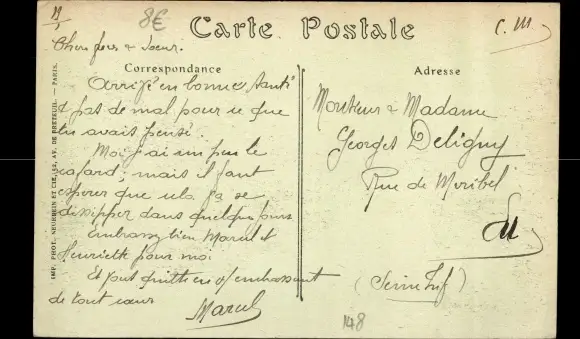 8€
Carte Postale
C. M.
Cher frère & sœur.
Correspondance
Arrivé en bonne santé
& pas de mal pour ce que
tu avais pensé.
Moi j'ai un peu le
cafard; mais il faut
espérer que cela va se
dissiper dans quelques jours
Embrassez bien Marcel et
Henriette pour moi
Et tout
embrassant
de tout cœur
Marcel
IMP. PHOT. NEURDEIN ET CIE, 52, AV. DE BRETEUIL. — PARIS.
Adresse
Monsieur & Madame
Georges Deligny
Rue de
(Seine Inf)
148